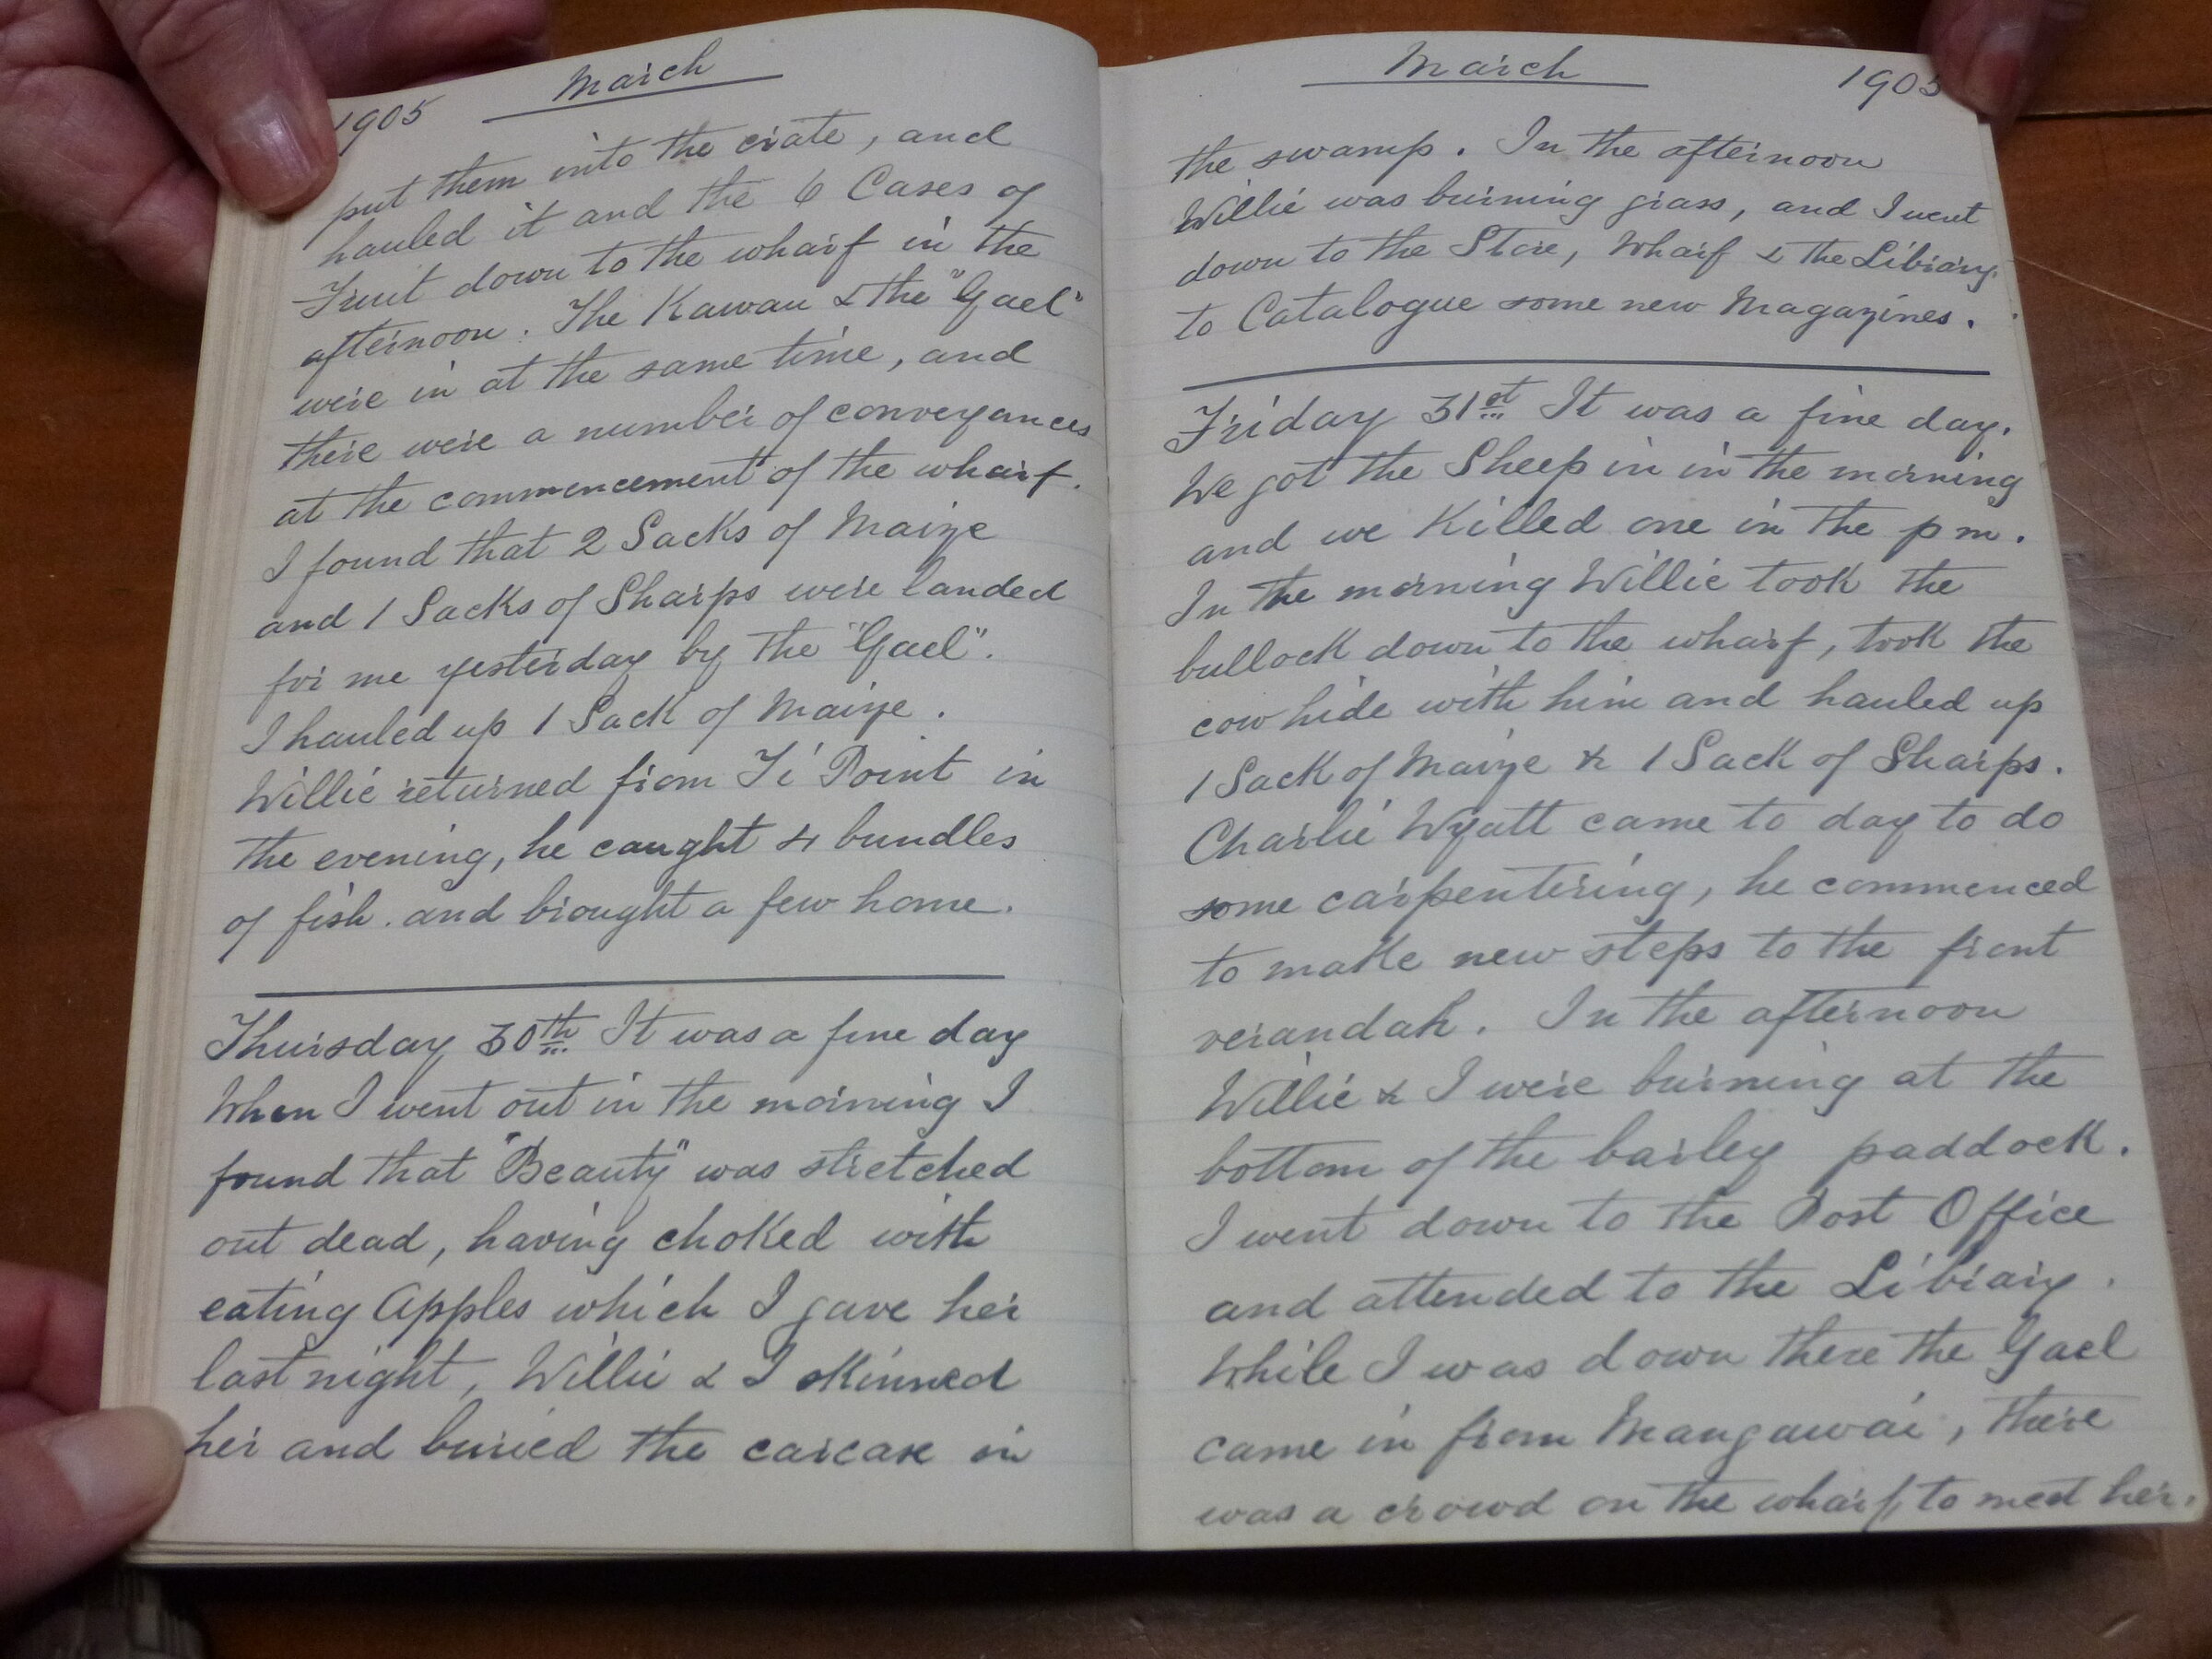 March
1905
put them into the crate, and
hauled it and the 6 Cases of
Fruit down to the wharf in the
afternoon. The Kawau & the "Gael"
were in at the same time, and
there were a number of conveyances
at the commencement of the wharf.
I found that 2 Sacks of Maize
and 1 Sacks of Sharps were landed
for me yesterday by the "Gael".
I hauled up 1 Sack of Maize.
Willie returned from Ti Point in
the evening, he caught 4 bundles
of fish. and brought a few home.
Thursday 30th It was a fine day
When I went out in the morning I
found that "Beauty" was stretched
out dead, having choked with
eating Apples which I gave her
last night, Willie & I skinned
her and buried the carcase in
March
1905
the swamp. In the afternoon
Willie was burning grass, and I went
down to the Store, Wharf & the Library
to Catalogue some new Magazines.
Friday 31st It was a fine day.
We got the Sheep in in the morning
and we Killed one in the pm.
In the morning Willie took the
bullock down to the wharf, took the
cow hide with him and hauled up
1 Sack of Maize & 1 Sack of Sharps.
Charlie Wyatt came to day to do
some carpentering, he commenced
to make new steps to the front
verandah. In the afternoon
Willie & I were burning at the
bottom of the barley paddock.
I went down to the Post Office
and attended to the Library.
While I was down there the Gael
came in from Mangawai, there
was a crowd on the wharf, to meet her.